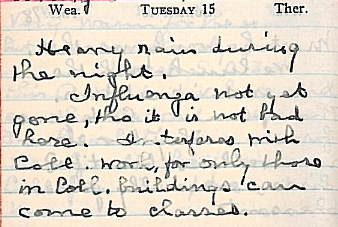 Wea. TUESDAY 15 Ther.
Heavy rain during
the night.
Influenza not yet
gone, tho it is not bad
here. Interferes with
Coll. work, for only those
in Coll. buildings can
come to classes.